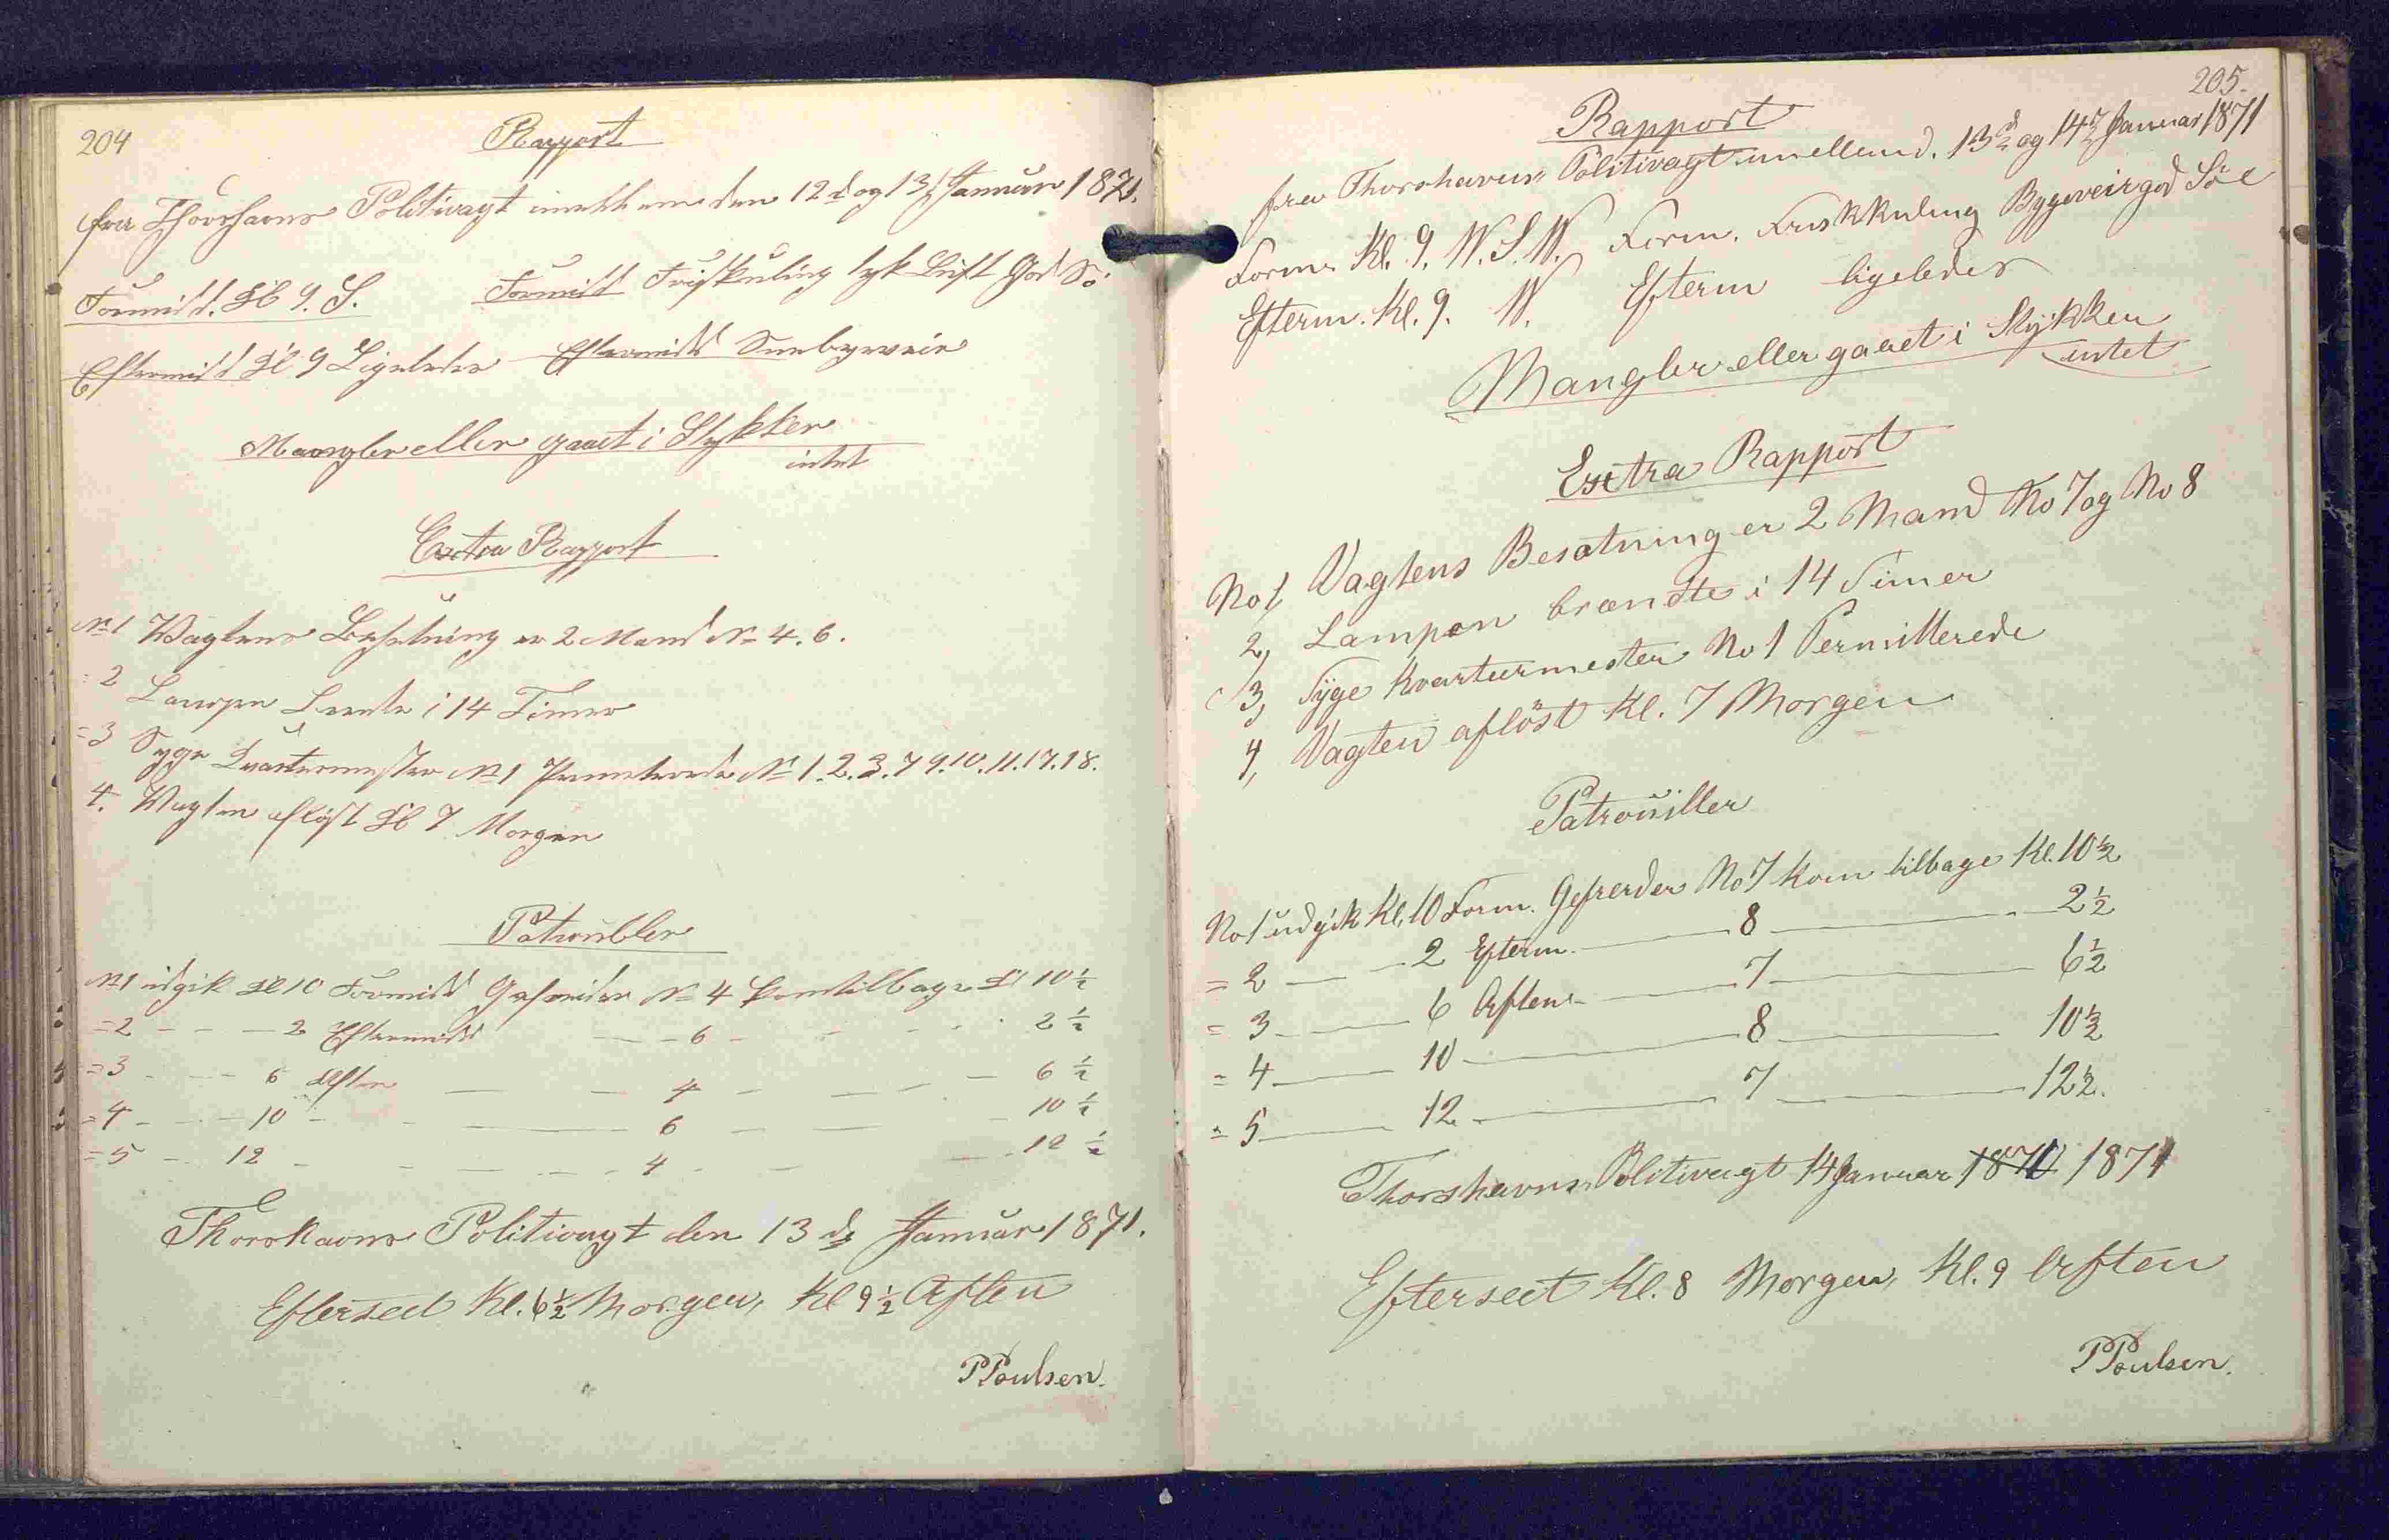 204
Rapport
fra Thorshavns Politivagt imellem den 12d og 13d Januar 1871.
Formidd. Kl 9. S. Formidd Friskuling tyk Luft God Sö
Eftermidd Kl 9 Ligeledes Eftermidd Sneebyeveir
Mangler eller gaaet i Stykker
intet
Extra Rapport
No 1 Vagtens Besetning er 2 Mand No 4. 6.
= 2 Lampen brente i 14 Timer
= 3 Syge Kvartermester No 1 Permiterede No 1. 2. 3. 7 9. 10. 11. 17. 18.
4. Vagten aflöst Kl 7 Morgen
Patroubler
No 1 udgik Kl 10 Formidd Gefreider No 4 kom tilbage Kl 10 ½
= 2 - - - 2 Eftermidd - - 6 - - - - 2 ½
= 3 - - - 6 Aften - - 4 - - - - 6 ½
= 4 - - - 10 - - - 6 - - - 10 ½
= 5 - - 12 - - - - - 4 - - - 12 ½
Thorshavns Politivagt den 13de Januar 1871.
Efterseet Kl. 6½ Morgen, Kl 9½ Aften
PPoulsen.
205.
Rapport
fra Thorshavns Politivagt imellem d. 13d og 14d Januar 1871
Form. Kl. 9. W. S. W. Form. Friskkuling Bygeveir god Söe
Efterm. Kl. 9. W. Efterm ligeledes
Mangler eller gaaet i Stykker
intet
Extra Rapport
No 1, Vagtens Besatning er 2 Mand No 7 og No 8
2, Lampen brændte i 14 Timer
3, Syge Kvartermester No 1 Permitterede
4, Vagten aflöst Kl. 7 Morgen
Patrouiller
No 1 udgik Kl. 10 Form. Gefreider No 7 kom tilbage Kl. 10½
= 2 — — 2 Efterm. — 8 — 2½
= 3 — 6 Aften — 7 — 6½
= 4 — 10 — 8 — 10½
= 5 — 12 — 7 — 12½.
Thorshavns Politivagt 14 Januar 1870 1871
Efterseet Kl. 8 Morgen, Kl. 9 Aften
PPoulsen.